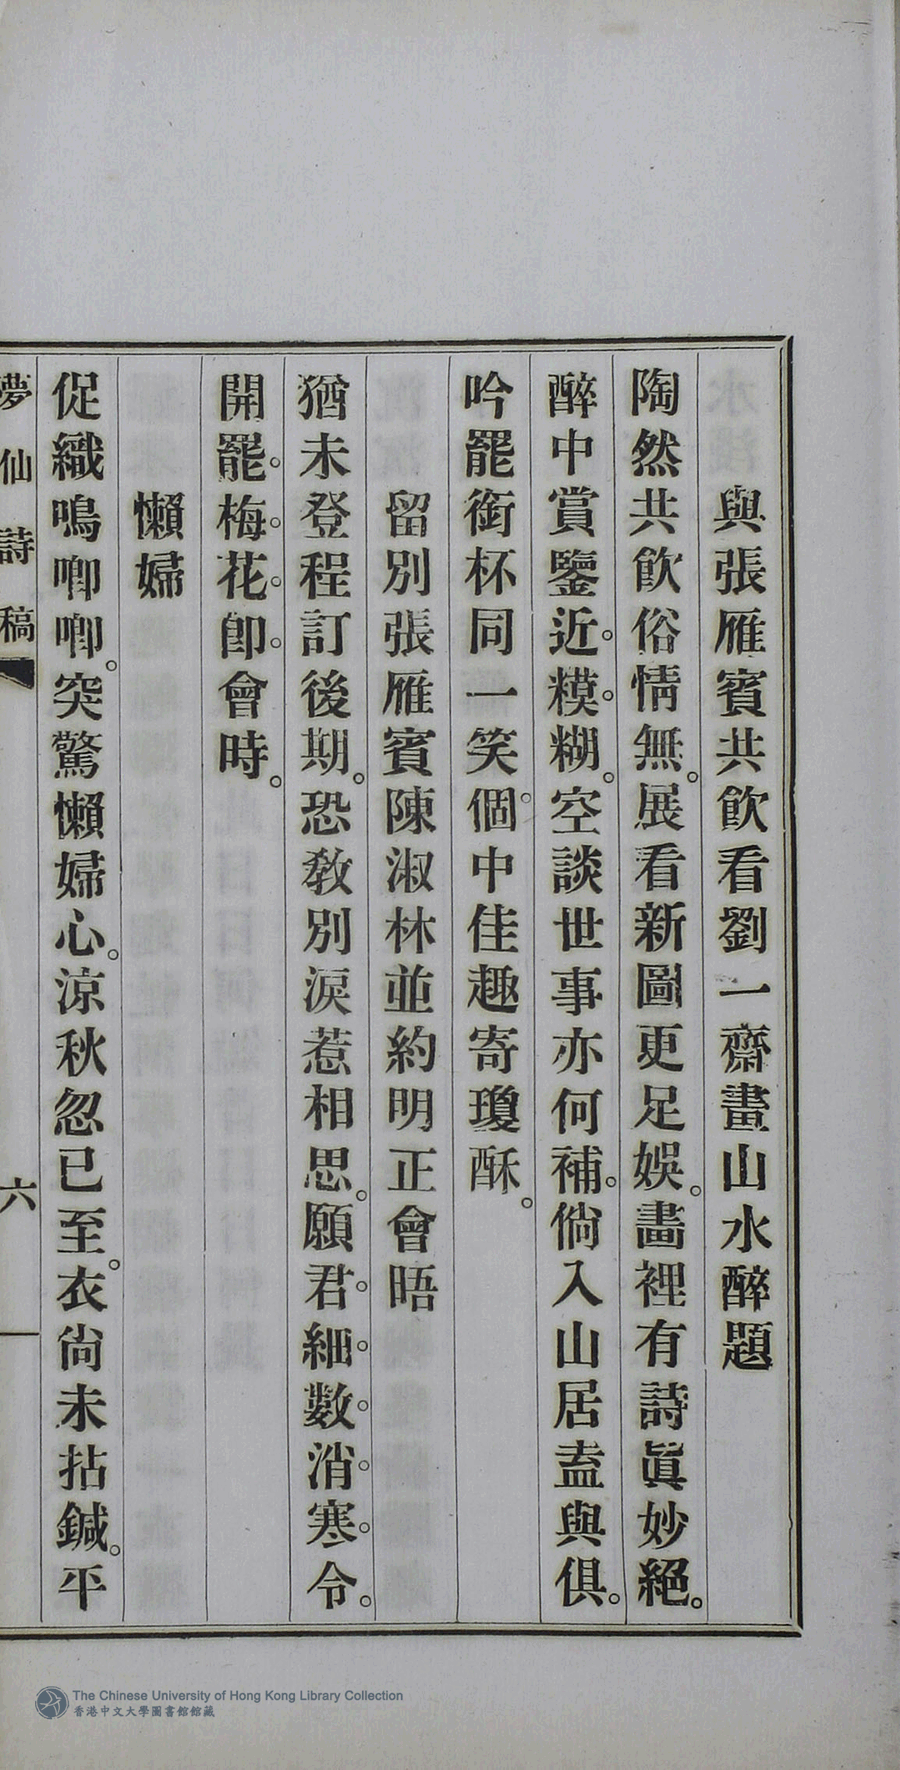 與張雁賓共飲看劉一齋畫山水醉題
陶然共飲俗情無。展看新圖更足娛。畵裡有詩眞妙絕。
醉中賞鑒近。糢。糊。空談世事亦何補。倘入山居盍與俱。
吟罷銜杯同一笑。個中佳趣寄瓊酥。
留別張雁賓陳淑林並約明正會晤
猶未登程訂後期。恐敎別淚惹相思。願君。細。數。消。寒。令。
開罷。梅。花。卽。會時。
懶婦
促織鳴唧唧。突驚懶婦心。涼秋忽已至。衣尙未拈鍼。平
夢仙詩稿
六
The Chinese University of Hong Kong Library Collection
香港中文大學圖書館館藏